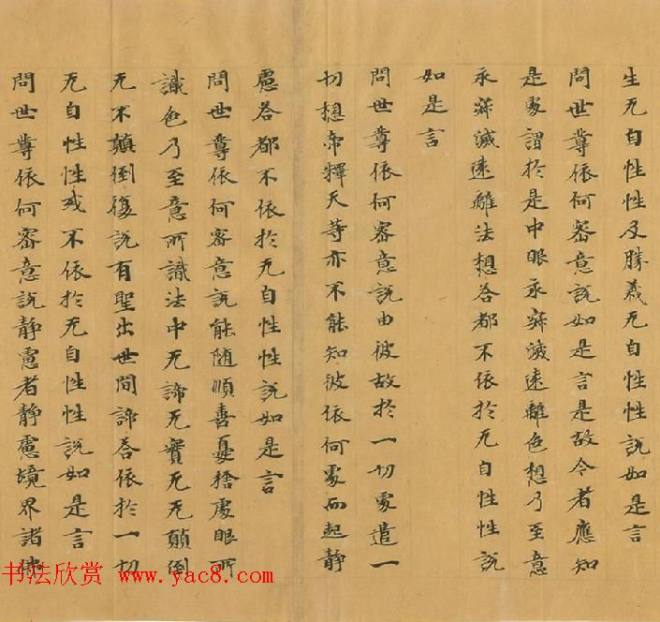 生无自性性及勝義无自性性說如是言
問世尊依何密意說如是言是故今者應知
是處謂於是中眼永寂滅遠離色想乃至意
永寂滅遠離法想答都不依於无自性性說
如是言
問世尊依何密意說由彼故於一切處遣一
切想帝釋天等亦不能知彼依何處而起静
慮答都不依於无自性性說如是言
問世尊依何密意說能随順喜憂捨處眼所
識色乃至意所識法中无諦无實无无顛倒
无不顛倒復說有聖出世間諦答依於一切
无自性性或不依於无自性性說如是言
問世尊依何密意說静慮者静慮境界諸佛
书法欣赏 www.yac8.com